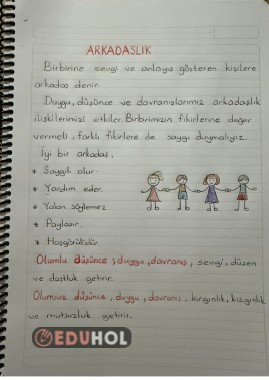 ARKADAŞLIK
Birbirine sevgi ve anlayış gösteren kişilere
arkadaş denir.
Duygu, düşünce ve davranışlarımız arkadaşlık
ilişkilerimizi etkiler. Birbirimizin fikirlerine değer
vermeli, farklı fikirlere de saygı duymalıyız.
İyi bir arkadaş,
* Saygılı olur.
* Yardım eder.
* Yalan söylemez
* Paylaşır.
* Hoşgörülüdür.
Olumlu düşünce, duygu, davranış, sevgi, düzen
ve dostluk getirir.
Olumsuz düşünce, duygu, davranış, kırgınlık, kızgınlık
ve mutsuzluk getirir.
EDUHOL